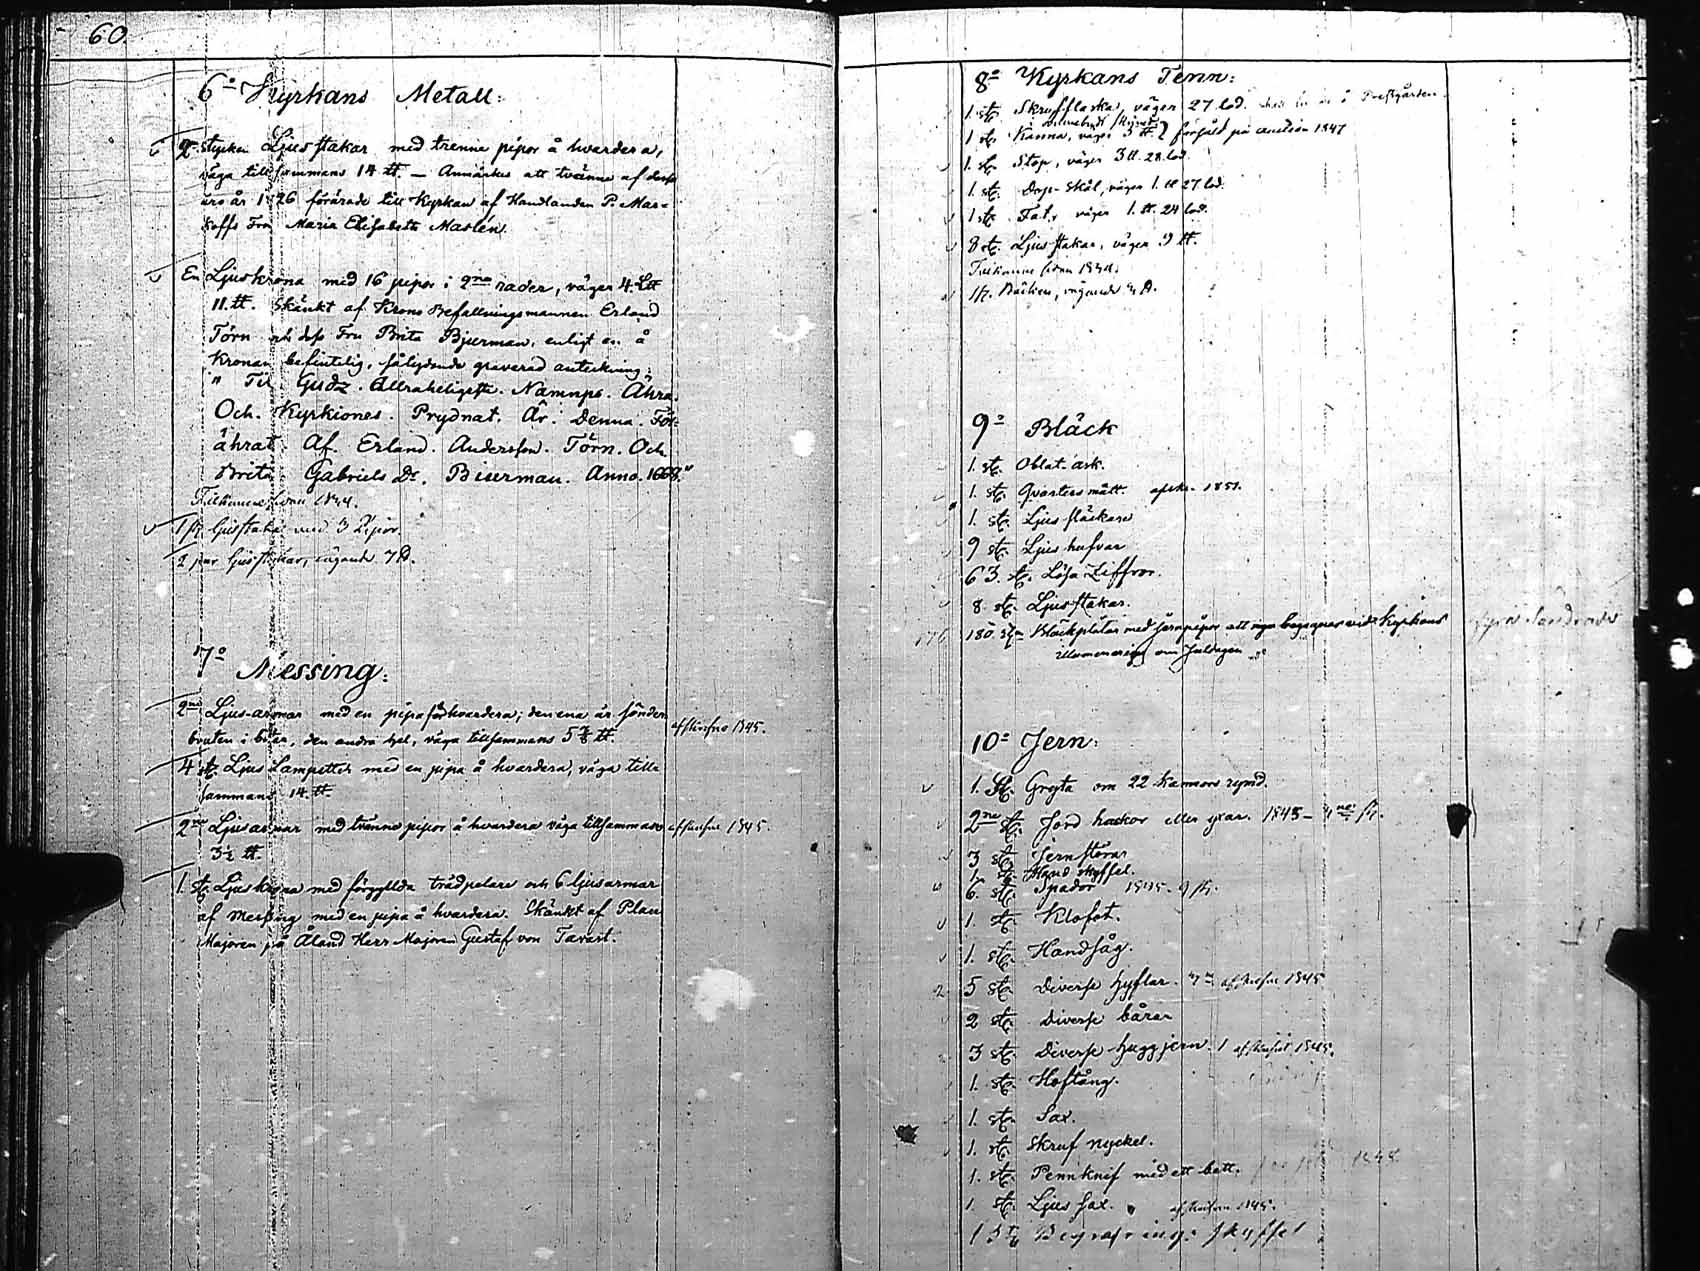 60
6º Kyrkans Metall:
2 stycken Ljusstakar med trenne pipor å hvardera,
väga tillsammans 14 tt. — Anmärkes att tvänne af dessa
äro år 1726 förärade till Kyrkan af Handlanden P. Mas-
Fru Maria Elisabeth Maslén.
En Ljuskrona med 16 pipor i 2ne rader, väger 4. Ltt
11. tt. Skänkt af Krono Befallningsmannen Erland
Törn och dess Fru Brita Bjurman, enligt en å
Kronan befintelig, sålydande graverad anteckning:
" Til. Gudz. Allraheligesta. Namnps. Ähra.
Och. Kyrkiones. Prydnat. Är. Denna. För-
ährat. Af. Erland. Andersson. Törn. Och
Brita Gabriels Dr. Biserman. Anno. 1668."
Tillkomne sedan 1834.
1 st. ljusstake med 3 Pipor
2 par ljusstakar, vägande 7 tt.
7º Messing:
2ne Ljus-armar med en pipa på hvardera; den ena är sönder
bruten i bitar, den andra hel, väga tillsammans 5 tt. afskrifne 1845.
4 st. Ljus Lampetter med en pipa å hvardera, väga till-
sammans 14. tt.
2ne Ljusarmar med tvänne pipor å hvardera väga tillsammans afskrifne 1845.
3½ tt.
1. st. Ljuskrona med förgyllda trädpelare och 6 ljusarmar
af Messing med en pipa å hvardera. Skänkt af Plan
Majoren på Åland Herr Majoren Gustaf von Tavast.
8º Kyrkans Tenn:
1. st. Skrufflaska, väger 27 lod. i Prestgården.
1 st. Kanna, väger 3 tt. försåld på auction 1847
1. st. Stop, väger 3 tt. 28 lod.
1. st. Dop-Skål, väger 1. tt 27 lod.
1 st. Fat, väger 1. tt. 24 lod.
8 st. Ljusstakar, väger 9 tt.
Tillkomne sedan 1834.
1 st. Bäcken, vägande 4 tt.
9º Bläck
1. st. Oblat-ask.
1. st. Qvartersmått. afskr. 1851.
1. st. Ljus släckare
9 st. Ljushufvar
63. st. Lösa Ziffror.
8. st. Ljusstakar.
176 180. st. Bläckplåtar med jernpipor att begagnas vid Kyrkans
illuminering om Juldagen
10º Jern:
1. st. Gryta om 22 kannors rymd.
2ne st. Jord hackor eller yxar. 1845 – 4ne st.
3 st. Jernstörar
1. st. Hand skyffel.
6. st. Spador 1845. 9 st.
1. st. Klofot.
1. st. Handsåg.
5 st. Diverse hyflar. afskrefne 1845
2 st. Diverse bårar
3 st. Diverse huggjern. 1 afskrifvit 1845.
1. st. Hoftång.
1. st. Sax.
1. st. Skruf nyckel.
1. st. Pennknif med ett bett. 1848
1. st. Ljus sax. afskrifven 1845.
1 st Begrafnings skyffel